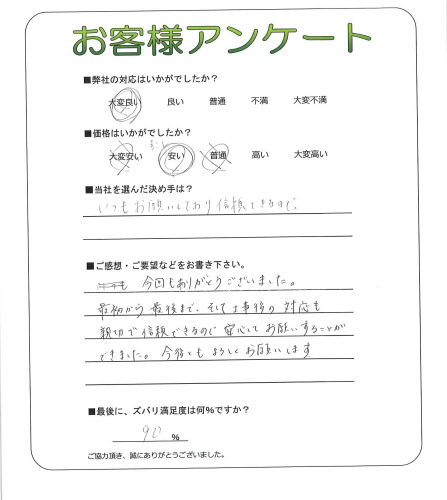 お客様アンケート
■弊社の対応はいかがでしたか?
大変良い 良い 普通 不満 大変不満
■価格はいかがでしたか?
大変安い 安い 普通 高い 大変高い
■当社を選んだ決め手は?
いつもお願いしており信頼できるので。
■ご感想・ご要望などをお書き下さい。
今回もありがとうございました。
最初から最後まで、そして工事後の対応も
親切で信頼できるので安心してお願いすることが
できました。今後ともよろしくお願いします
■最後に、ズバリ満足度は何%ですか?
90 %
ご協力頂き、誠にありがとうございました。